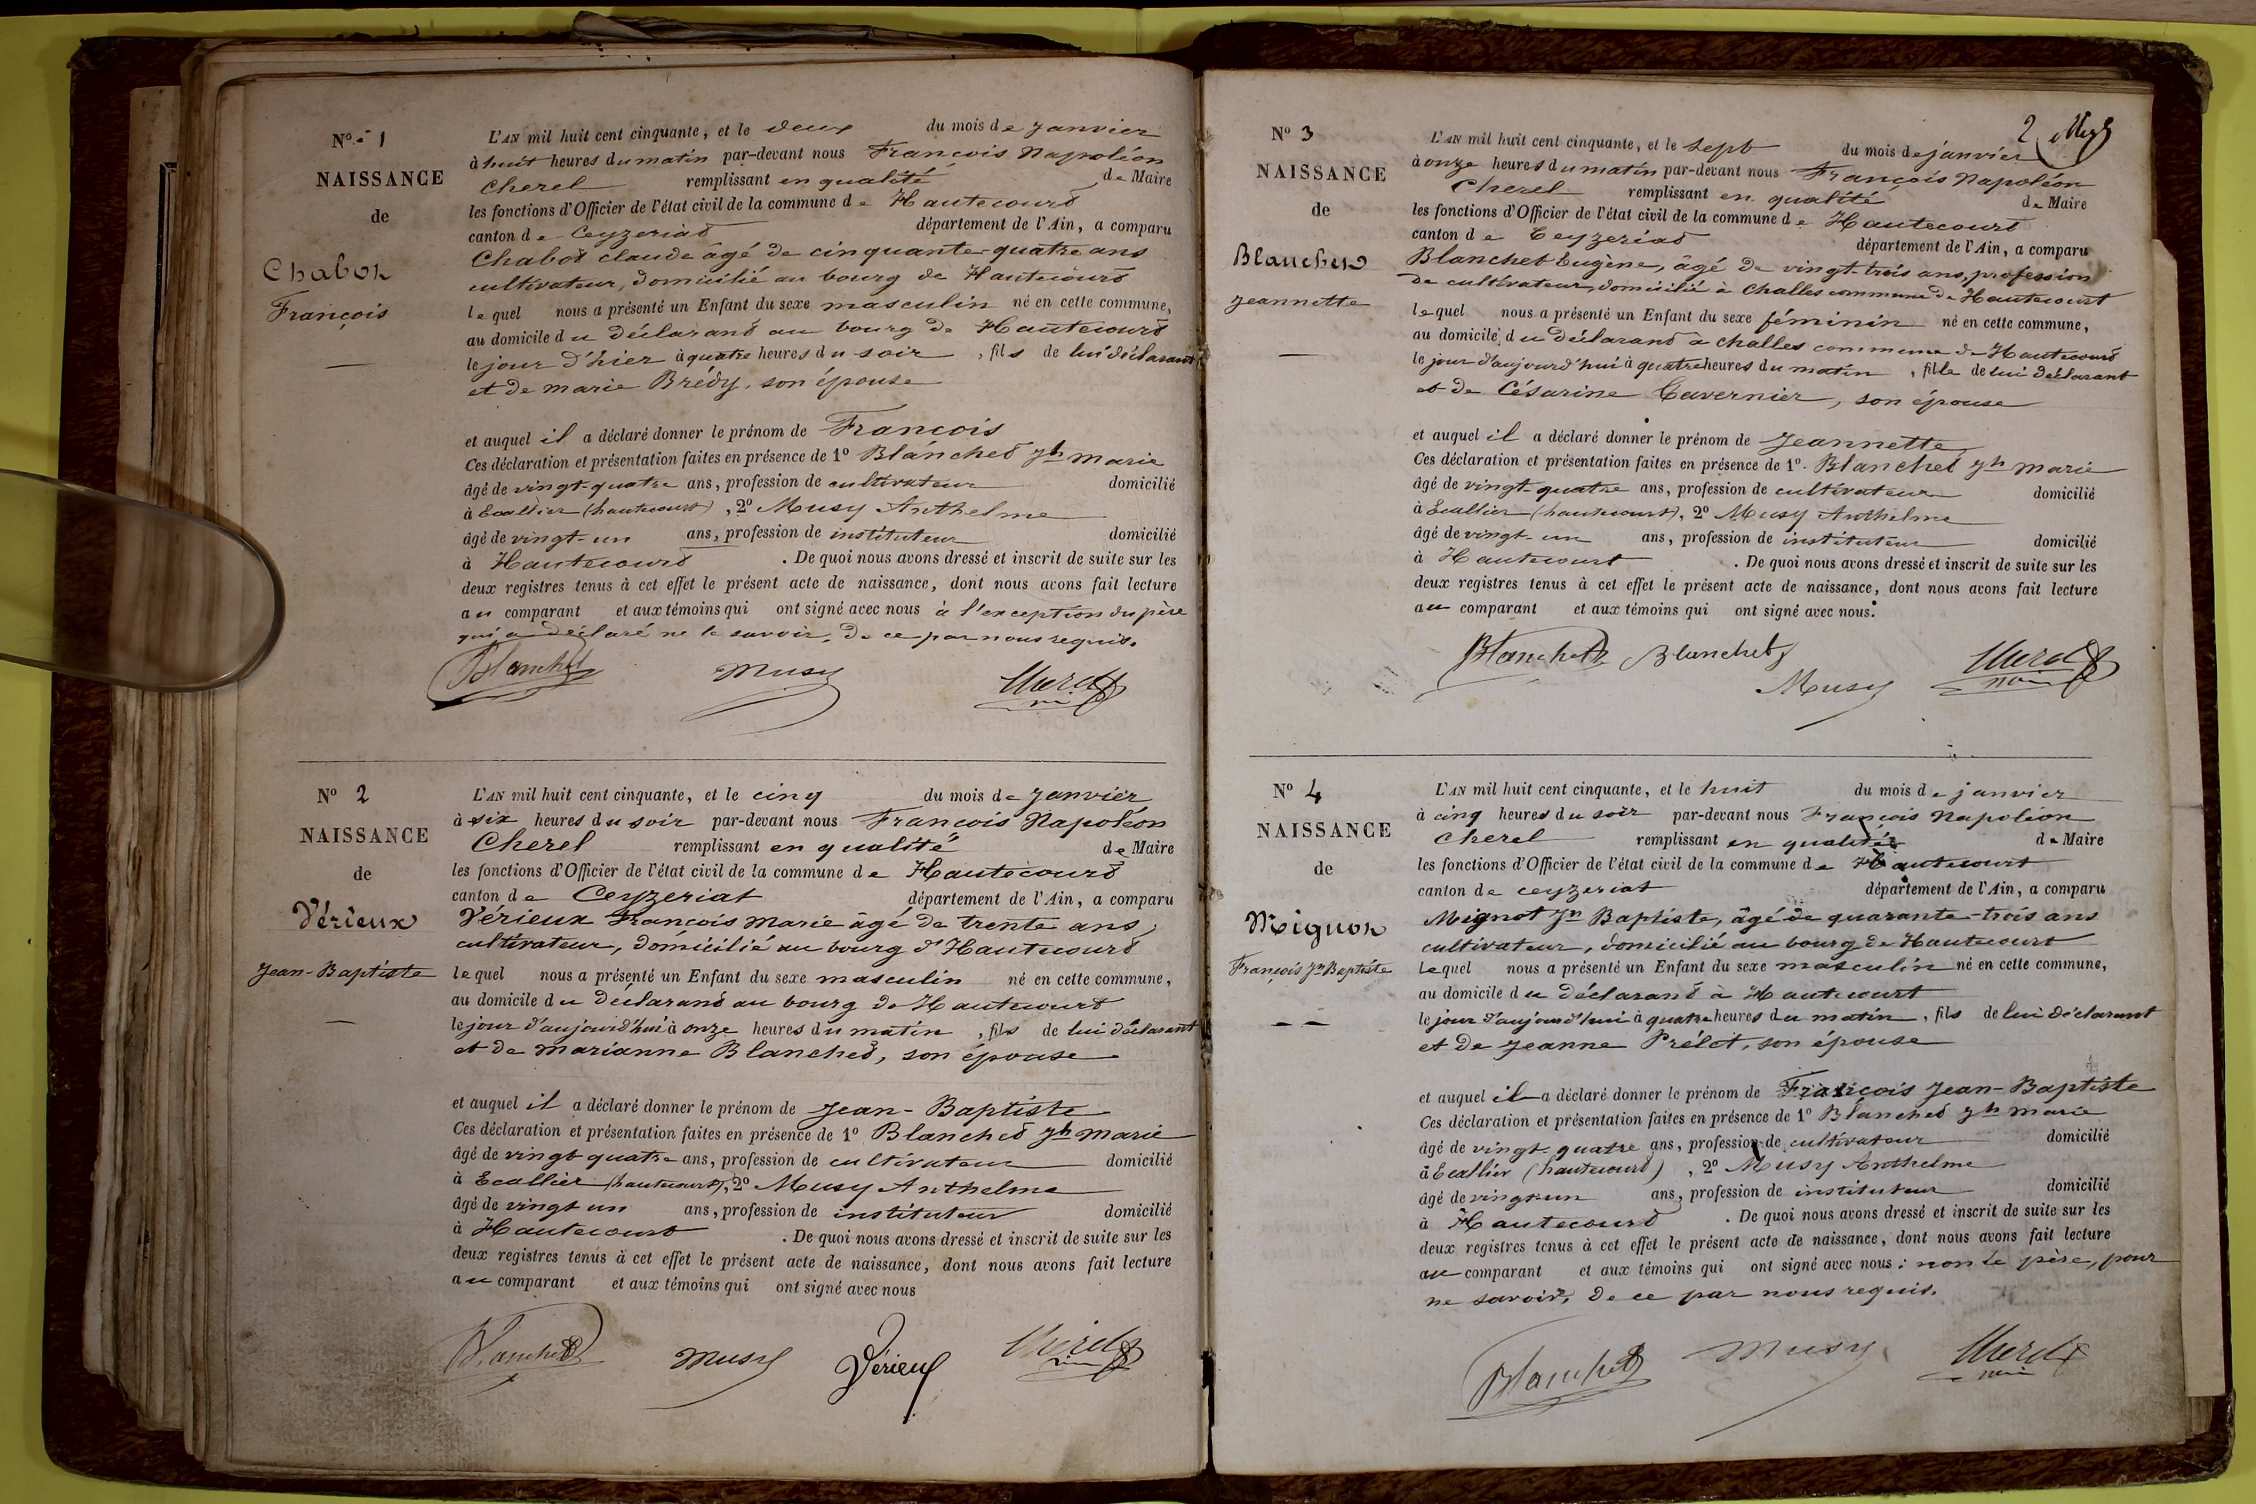 N° 1
NAISSANCE
de
Chabot
François
L'AN mil huit cent cinquante, et le deux du mois de janvier
à huit heures du matin par-devant nous François Napoléon
Cherel remplissant en qualité de Maire
les fonctions d'Officier de l'état civil de la commune de Hautecourt
canton de Ceyzeriat département de l'Ain, a comparu
Chabot claude âgé de cinquante-quatre ans
cultivateur, domicilié au bourg de Hautecourt
lequel nous a présenté un Enfant du sexe masculin né en cette commune,
au domicile du déclarant au bourg de Hautecourt
le jour d'hier à quatre heures du soir, fils de lui déclarant
et de marie Brédy, son épouse
et auquel il a déclaré donner le prénom de François
Ces déclaration et présentation faites en présence de 1° Blanchet jh marie
âgé de vingt-quatre ans, profession de cultivateur domicilié
à Ecallier (hautecourt), 2° Musy Anthelme
âgé de vingt-un ans, profession de instituteur domicilié
à Hautecourt. De quoi nous avons dressé et inscrit de suite sur les
deux registres tenus à cet effet le présent acte de naissance, dont nous avons fait lecture
au comparant et aux témoins qui ont signé avec nous à l'exception du père
qui a déclaré ne le savoir, de ce par nous requis.
Blanchet Musy Cherel
N° 2
NAISSANCE
de
Vérieux
Jean-Baptiste
L'AN mil huit cent cinquante, et le cinq du mois de janvier
à six heures du soir par-devant nous François Napoléon
Cherel remplissant en qualité de Maire
les fonctions d'Officier de l'état civil de la commune de Hautecourt
canton de Ceyzeriat département de l'Ain, a comparu
Vérieux François Marie âgé de trente ans,
cultivateur, domicilié au bourg d'Hautecourt
lequel nous a présenté un Enfant du sexe masculin né en cette commune,
au domicile du déclarant au bourg de Hautecourt
le jour d'aujourd'hui à onze heures du matin, fils de lui déclarant
et de marianne Blanchet, son épouse
et auquel il a déclaré donner le prénom de Jean-Baptiste
Ces déclaration et présentation faites en présence de 1° Blanchet jh marie
âgé de vingt quatre ans, profession de cultivateur domicilié
à Ecallier (hautecourt), 2° Musy Anthelme
âgé de vingt un ans, profession de instituteur domicilié
à Hautecourt. De quoi nous avons dressé et inscrit de suite sur les
deux registres tenus à cet effet le présent acte de naissance, dont nous avons fait lecture
au comparant et aux témoins qui ont signé avec nous
Blanchet Musy Vérieux Cherel
2
N° 3
NAISSANCE
de
Blanchet
jeannette
L'AN mil huit cent cinquante, et le sept du mois de janvier
à onze heures du matin par-devant nous François Napoléon
Cherel remplissant en qualité de Maire
les fonctions d'Officier de l'état civil de la commune de Hautecourt
canton de Ceyzeriat département de l'Ain, a comparu
Blanchet Eugène, âgé de vingt-trois ans, profession
de cultivateur, domicilié à Challes commune de Hautecourt
lequel nous a présenté un Enfant du sexe féminin né en cette commune,
au domicile du déclarant à challes commune de Hautecourt
le jour d'aujourd'hui à quatre heures du matin, fille de lui déclarant
et de Césarine Tavernier, son épouse
et auquel il a déclaré donner le prénom de Jeannette
Ces déclaration et présentation faites en présence de 1° Blanchet jh marie
âgé de vingt-quatre ans, profession de cultivateur domicilié
à Ecallier (hautecourt), 2° Musy Anthelme
âgé de vingt-un ans, profession de instituteur domicilié
à Hautecourt. De quoi nous avons dressé et inscrit de suite sur les
deux registres tenus à cet effet le présent acte de naissance, dont nous avons fait lecture
au comparant et aux témoins qui ont signé avec nous.
Blanchet Blanchet Cherel
Musy
N° 4
NAISSANCE
de
Mignot
François Jn Baptiste
L'AN mil huit cent cinquante, et le huit du mois de janvier
à cinq heures du soir par-devant nous François Napoléon
Cherel remplissant en qualité de Maire
les fonctions d'Officier de l'état civil de la commune de Hautecourt
canton de ceyzeriat département de l'Ain, a comparu
Mignot Jn Baptiste, âgé de quarante-trois ans
cultivateur, domicilié au bourg de Hautecourt
Lequel nous a présenté un Enfant du sexe masculin né en cette commune,
au domicile du déclarant à Hautecourt
le jour d'aujourd'hui à quatre heures du matin, fils de lui déclarant
et de Jeanne Prélot, son épouse
et auquel il a déclaré donner le prénom de François Jean-Baptiste
Ces déclaration et présentation faites en présence de 1° Blanchet jh marie
âgé de vingt-quatre ans, profession de cultivateur domicilié
à Ecallier (hautecourt), 2° Musy Anthelme
âgé de vingt-un ans, profession de instituteur domicilié
à Hautecourt. De quoi nous avons dressé et inscrit de suite sur les
deux registres tenus à cet effet le présent acte de naissance, dont nous avons fait lecture
au comparant et aux témoins qui ont signé avec nous; non le père, pour
ne savoir, de ce par nous requis.
Blanchet Musy Cherel